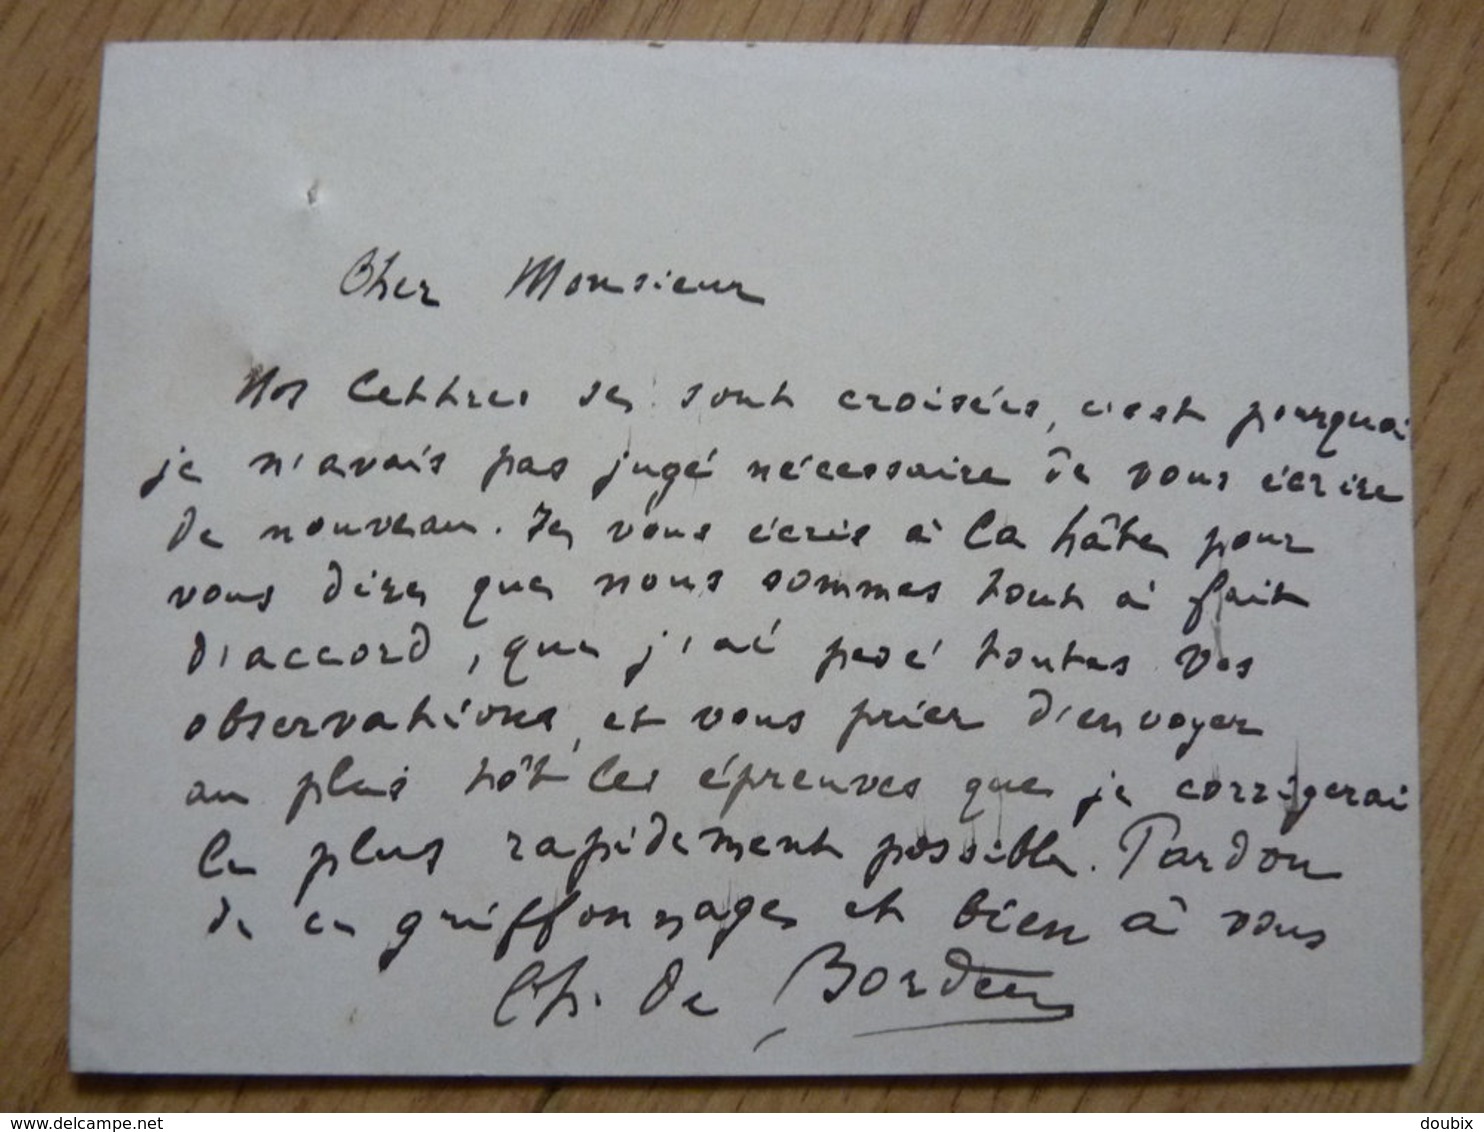 Cher Monsieur
Nos lettres se sont croisées, c'est pourquoi
je n'avais pas jugé nécessaire de vous écrire
de nouveau. Je vous écris à la hâte pour
vous dire que nous sommes tout à fait
d'accord, que j'ai pesé toutes vos
observations, et vous prier d'envoyer
au plus tôt les épreuves que je corrigerai
le plus rapidement possible. Pardon
de ce griffonnage et bien à vous
Ch. de Bordeu
www.delcampe.net
doubix